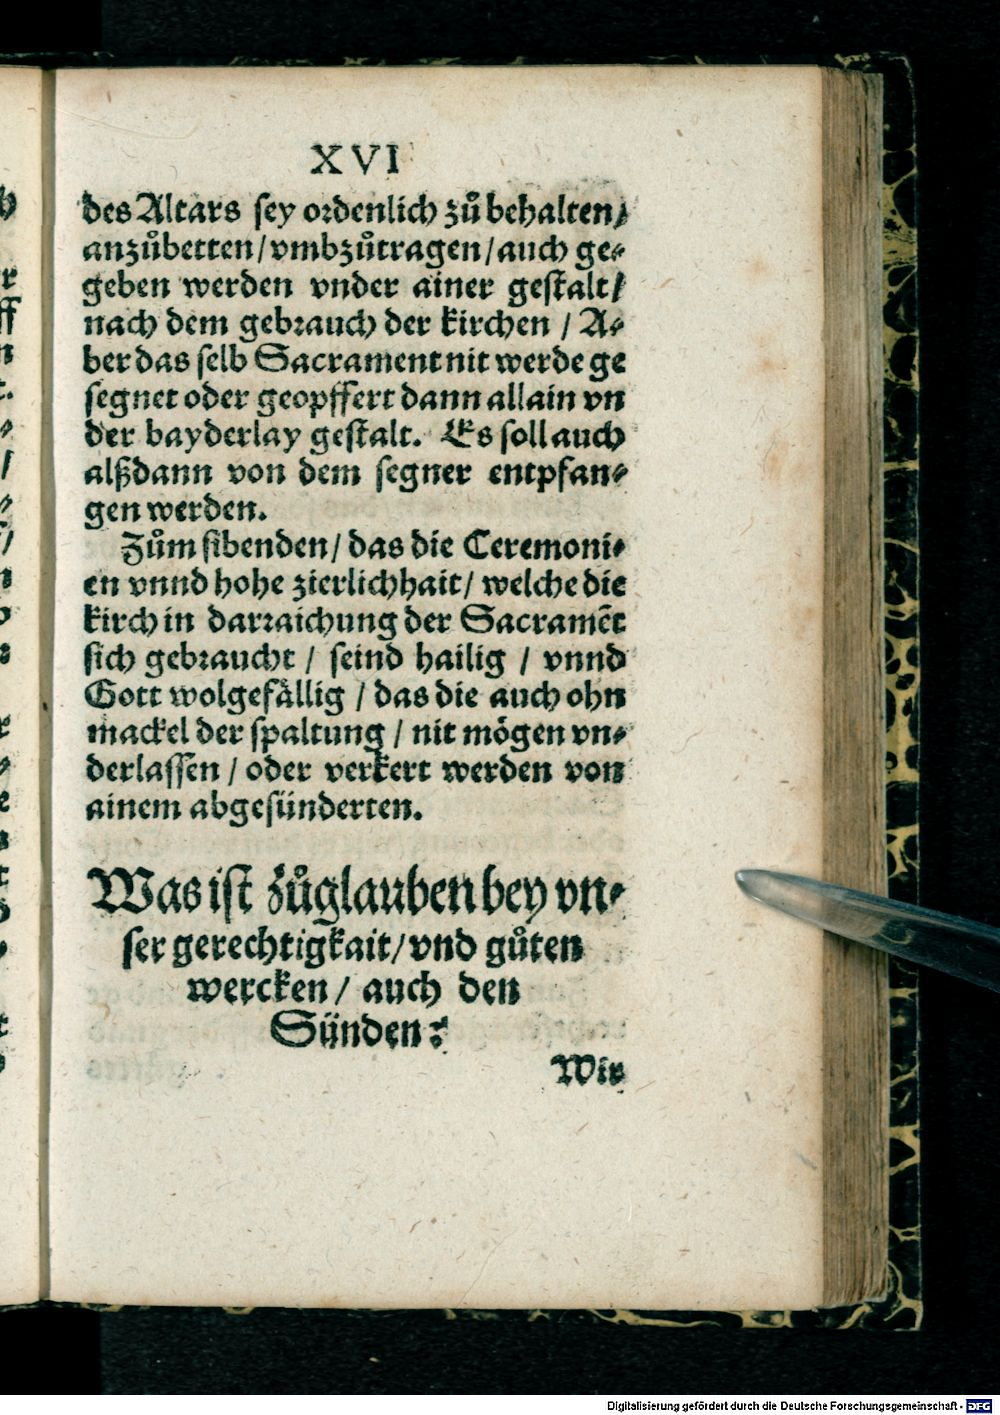 XVI
des Altars sey ordenlich zůbehalten/
anzůbetten/vmbzůtragen/auch ge⸗
geben werden vnder ainer gestalt/
nach dem gebrauch der kirchen / A⸗
ber das selb Sacrament nit werde ge
segnet oder geopffert dann allain vn
der bayderlay gestalt. Es soll auch
alßdann von dem segner entpfan⸗
gen werden.
Zům sibenden/ das die Ceremoni⸗
en vnnd hohe zierlichhait/ welche die
kirch in darraichung der Sacramēt
sich gebraucht / seind hailig / vnnd
Gott wolgefällig / das die auch ohn
mackel der spaltung / nit mögen vn⸗
derlassen / oder verkert werden von
ainem abgesünderten.
Was ist zůglauben bey vn⸗
ser gerechtigkait/vnd gůten
wercken/ auch den
Sünden?
Wir
Digitalisierung gefördert durch die Deutsche Forschungsgemeinschaft - DFG